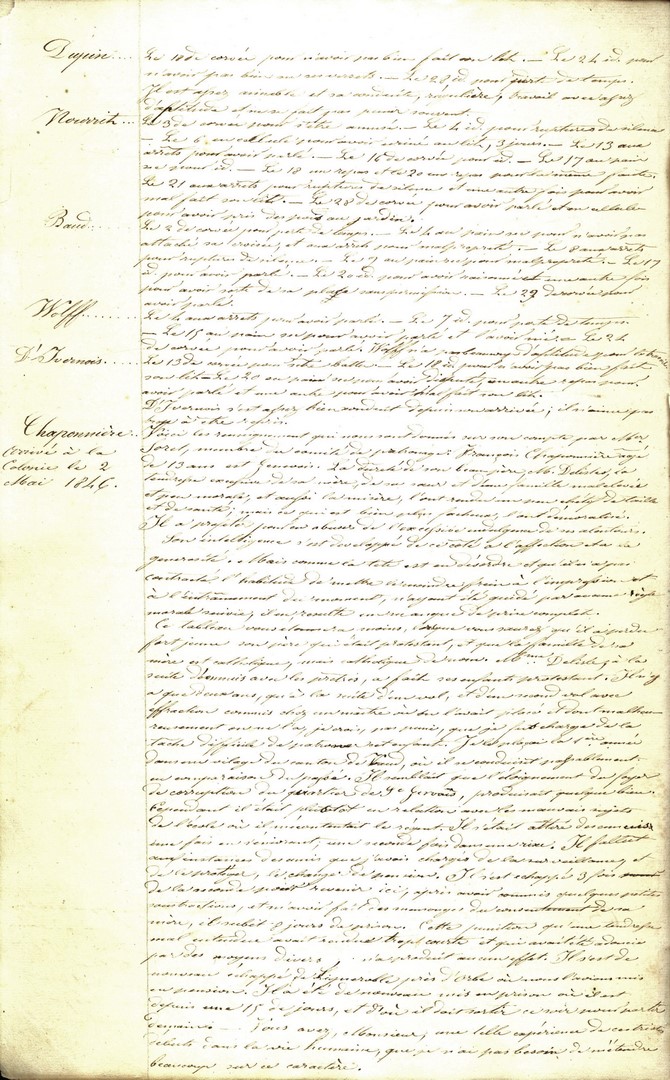 Dupin.... Le 10 de corvée pour n'avoir pas bien fait son lit. — Le 24 id. pour
n'avoir pas bien au aux arrêts. — Le 28 id. pour perte de temps.
Il est assez aimable et sa conduite, régulière; travail avec assez
d'aptitude et ne se fait pas punir souvent.
Nourrit... Le 3 de corvée pour s'être amusé. — Le 4 id. pour ruptures de silence
— Le 6 en cellule pour avoir uriné au lit, 3 jours. — Le 13 aux
arrêts pour avoir parlé. — Le 16 de corvée pour id. — Le 17 au pain
sec pour id. — Le 18 un repas et le 20 un repas pour la même faute.
Le 21 aux arrêts pour ruptures de silence et une autre fois pour avoir
mal fait son lit. — Le 28 de corvée pour avoir parlé et en cellule
pour avoir pris des au jardin.
Baud... Le 2 de corvée pour perte de temps. — Le 4 au pain sec pour n'avoir pas
attaché sa croisée, et aux arrêts pour malpropreté. — Le 8 aux arrêts
pour rupture de silence. — Le 9 au pain sec pour malpropreté. — Le 17
id. pour avoir parlé. — Le 20 id. pour avoir et une autre fois
pour avoir sorti de sa place sans permission. — Le 29 de corvée pour
avoir parlé.
Wolff...... Le 4 aux arrêts pour avoir parlé. — Le 7 id. pour perte de temps.
— Le 15 au pain sec pour avoir parlé et l'avoir nié. — Le 24
de corvée pour avoir parlé. Wolff n'a pas beaucoup d'aptitude pour le travail
D'Ivernois.... Le 13 de corvée pour — Le 18 id. pour n'avoir pas bien fait
son lit — Le 20 au pain sec pour avoir disputé, un autre repas pour
avoir parlé et une autre pour avoir mal fait son lit.
D'Ivernois s'est assez bien conduit depuis son arrivée; il n'aime pas
trop à être repris.
Chaponnière.. Voici les renseignements qui nous sont donnés sur son compte par Mr.
arrivé à la Soret, membre du comité de patronage: François Chaponnière âgé
Colonie le 2 de 13 ans est Genevois. La dureté de son beau-père Mr. Delisle, la
Mai 1846. de sa mère, de sa sœur et d'une famille
et peu morale, et aussi la misère, l'ont rendu un peu chétif de taille
et de santé; mais ce qui est bien plus fâcheux, l'ont démoralisé.
Il a projeté pour en abuser de l'
Son intelligence s'est développée de ce côté à l'affection et à la
générosité. Mais comme la tête est en désordre et qu'il n'a pas
contracté l'habitude de mettre le moindre frein à l'impression et
à l'entraînement du moment, n'ayant été guidé par aucune règle
morale suivie, il en résulte un manque de prise complet.
Ce tableau vous étonnera moins, lorsque vous saurez qu'il a perdu
fort jeune son père qui était protestant, et que la famille de sa
mère est catholique, mais catholique de nom. Mme. Delisle, à la
suite d'ennuis avec les prêtres, a fait ses enfants protestant. Il n'y
a que deux ans, qu'à la suite d'un vol, et d'un second vol avec
effraction commis chez un maître où on l'avait placé et dont malheu-
reusement on ne l'a, je crois, pas puni, que je fus chargé de la
tâche difficile de patroner cet enfant. Je le plaçai la 1ère. année
dans un village du canton de Vaud, où il se conduisit passablement
en comparaison du passé. Il semblait que l'éloignement du foyer
de corruption du quartier de St. Gervais, produisait quelque bien.
Cependant il était plutôt en relation avec les mauvais sujets
de l'école où il mécontentait le régent. Il s'était
une fois en s'enivrant, une seconde fois dans une rixe. Il fallut
aux instances des amis que j'avais chargés de la surveillance et
de le protéger, le changer de pension. Il s'est échappé 3 fois
de la seconde pour revenir ici, après avoir commis quelques petites
soustractions, et m'avoir fait des mensonges du consentement de sa
mère, il subit 8 jours de prison. Cette punition qu'une tendresse
mal entendue avait rendue trop courte et qui avait été adoucie
par des moyens divers, n'a produit aucun effet. Il s'est de
nouveau échappé de Lignerolle près d'Orbe où nous l'avions mis
en pension. Il a été de nouveau mis en prison où il est
depuis une 15e. de jours, et d'où il doit sortir ce soir pour partir
demain. — Vous avez, Monsieur, une telle expérience de ces tristes
rebuts dans la vie humaine, que je n'ai pas besoin de m'étendre
beaucoup sur ce caractère.